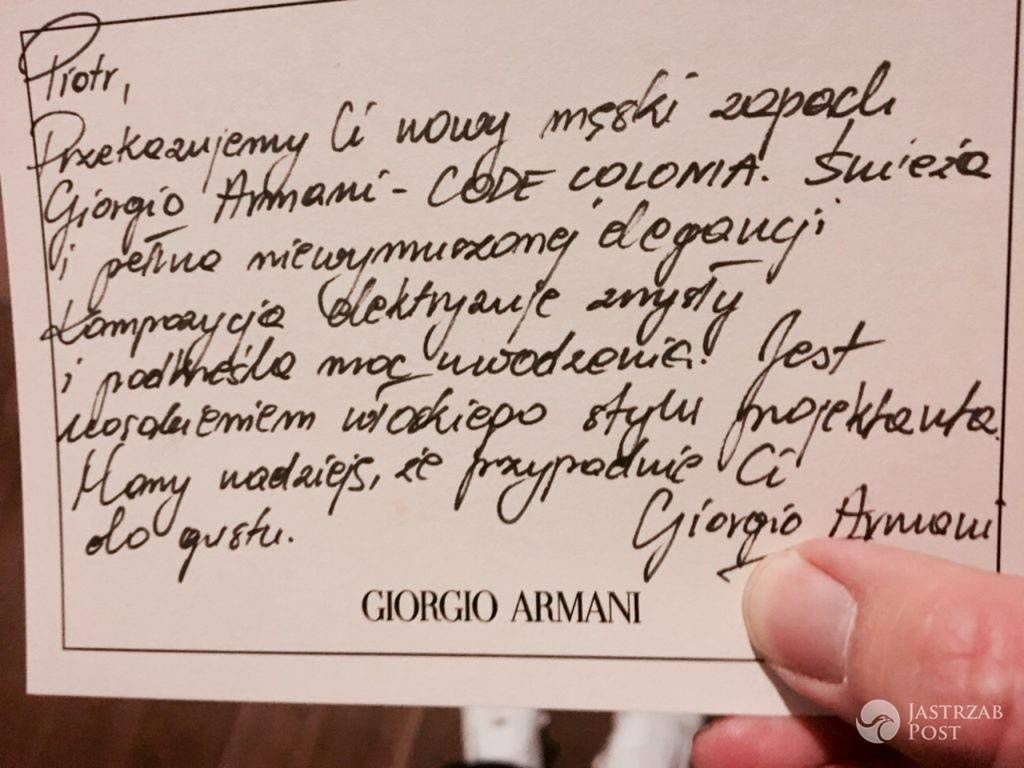 Piotr,
Przekazujemy Ci nowy męski zapach
Giorgio Armani - CODE COLONIA. Świeża
i pełna niewymuszonej elegancji
kompozycja elektryzuje zmysły
i podkreśla moc uwodzenia. Jest
uosobieniem włoskiego stylu projektanta.
Mamy nadzieję, że przypadnie Ci
do gustu.
Giorgio Armani
GIORGIO ARMANI
JASTRZAB
POST